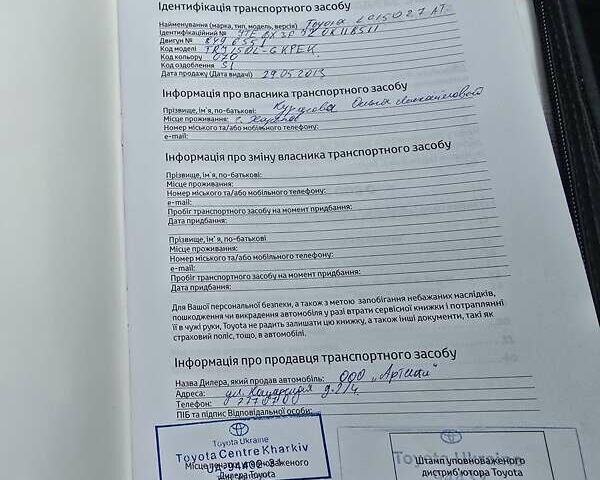 Ідентифікація транспортного засобу
Найменування (марка, тип, модель, версія) Toyota LC150 2.7 AT
Ідентифікаційний №
Двигун №
Код моделі
Код кольору 070
Код оздоблення 51
Дата продажу (Дата видачі) 29.05.2013
Інформація про власника транспортного засобу
Прізвище, ім'я, по-батькові:
Місце проживання: г. Харьков
Номер міського та/або мобільного телефону:
e-mail:
Інформація про зміну власника транспортного засобу
Прізвище, ім'я, по-батькові:
Місце проживання:
Номер міського та/або мобільного телефону:
e-mail:
Пробіг транспортного засобу на момент придбання:
Дата придбання:
Прізвище, ім'я, по-батькові
Місце проживання:
Номер міського та/або мобільного телефону:
e-mail:
Пробіг транспортного засобу на момент придбання:
Дата придбання:
Для Вашої персональної безпеки, а також з метою запобігання небажаних наслідків,
пошкодження чи викрадення автомобіля у разі втрати сервісної книжки і потраплянні
її в чужі руки, Toyota не радить залишати цю книжку, а також інші документи, такі як
страховий поліс, тощо, в автомобілі.
Інформація про продавця транспортного засобу
Назва Дилера, який продав автомобіль: ООО „Артсити"
Адреса: ул.
Телефон:
ПІБ та підпис Відповідальної особи:
Toyota Ukraine
Toyota Centre Kharkiv
UA-94402-31
Місце печатки уповноваженого
Дилера Toyota
Toyota Ukraine
Штамп уповноваженого
дистриб'ютора Toyota